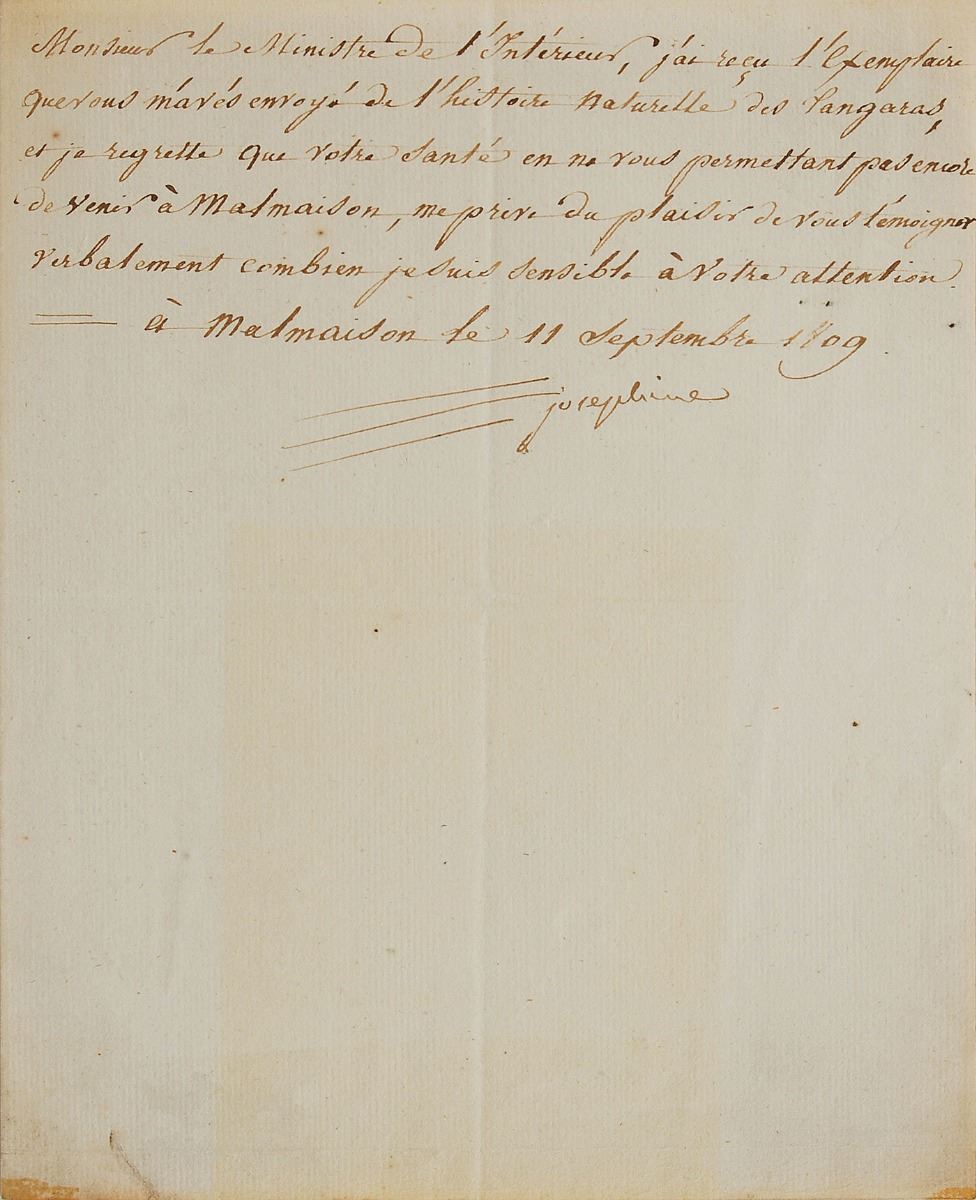 Monsieur le Ministre de l'Intérieur, j'ai reçu l'Exemplaire
que vous m'avés envoyé de l'histoire naturelle des Tangaras,
et je regrette que votre santé en ne vous permettant pas encore
de venir à Malmaison, me prive du plaisir de vous témoigner
verbalement combien je suis sensible à votre attention.
à Malmaison le 11 Septembre 1809
josephine